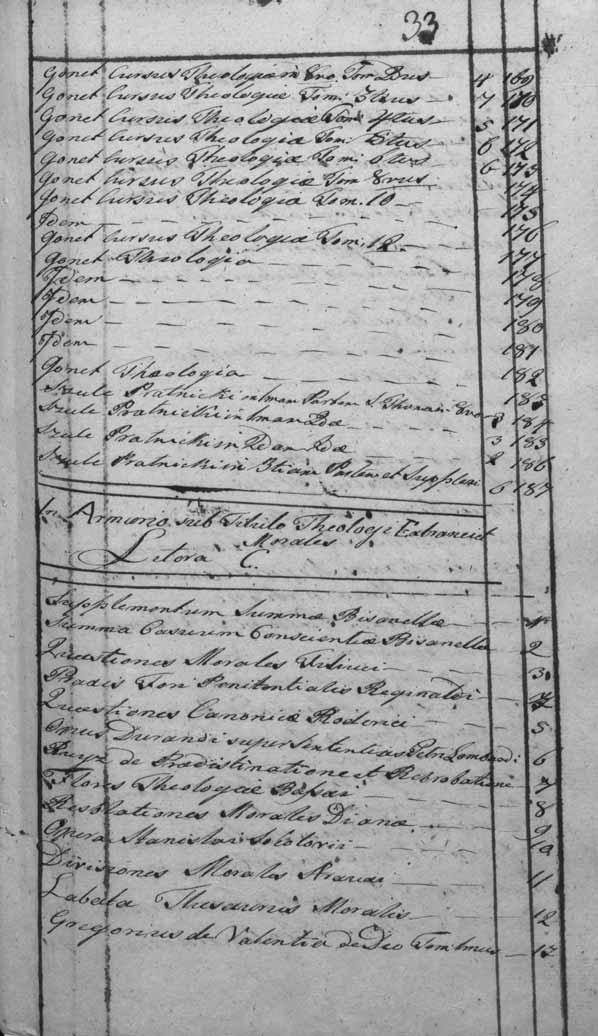 33
Gonet Cursus Theologiæ in 8vo. Tom. 2dus — 4 169
Gonet Cursus Theologiæ Tom: 3tius — 7 170
Gonet Cursus Theologiæ Tom: 4tus — 5 171
Gonet Cursus Theologiæ Tom: 5tus — 6 172
Gonet Cursus Theologiæ Tom: — 6 173
Gonet Cursus Theologiæ Tom: 8vus — 174
Gonet Cursus Theologia Tom. 10 — 175
Idem — 176
Gonet Cursus Theologiæ Tom: 12. — 177
Gonet Theologia — 178
Idem — 179
Idem — 180
Idem — 181
Idem
Gonet Theologia — 182
Szulc Pratnicki in 1mam Partem S. Thomæ 8vo 183
Szulc Pratnicki in 1mam 2dæ 3 184
Szulc Pratnicki in 2dam 2dæ 2 185
Szulc Pratnicki in 3tiam Partem et Supplem 186
6 187
In Armario sub Titulo Theologi Extranei et
Morales
Litera C.
Supplementum Summæ Bisanellæ —
Summa Casuum Conscientiæ Bisanella 2
Quæstiones Morales Filiuci — 3
Praxis Fori Penitentialis Reginaldi —
Quæstiones Canonicæ Roderici — 5
Opus Durandi super Sententias Petri Lombardi 6
Ruyz de Prædistinatione et Reprobatione 7
Flores Theologiæ — 8
Resolutiones Morales Diana — 9
Opera Stanislai Socolovii — 10
Divisiones Morales Araujai — 11
Labella Thesaurus Moralis — 12
Gregorius de Valentia de Deo Tom 1mus — 13